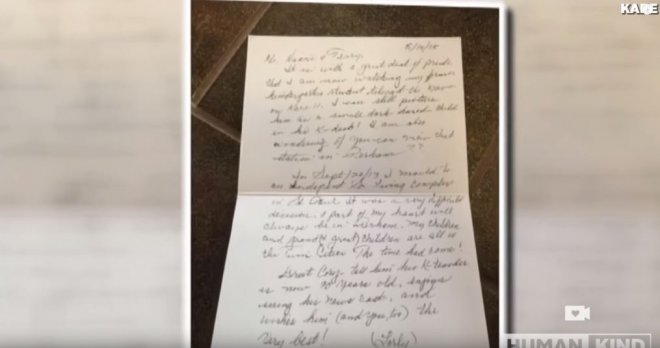 KARE
5/14/18
Hi, & Terry,
It is with a great deal of pride
that I am now watching my former
kindergarten student the news
on Kare 11. I can still picture
him as a small dark haired child
in his K-desk! I am also
wondering if you can view that
station in Perham??
In Sept/2017 I moved to
an Independent Living Complex
in St Paul. It was a very difficult
decision. A part of my heart will
always be in Perham. My children
and grand(& great) children are all in
the Twin Cities. The time had come!
Greet Cory, tell him his K-teacher
is now years old, enjoys
seeing his news cast, and
wishes him (and you, too) the
very best!
HUMANKIND